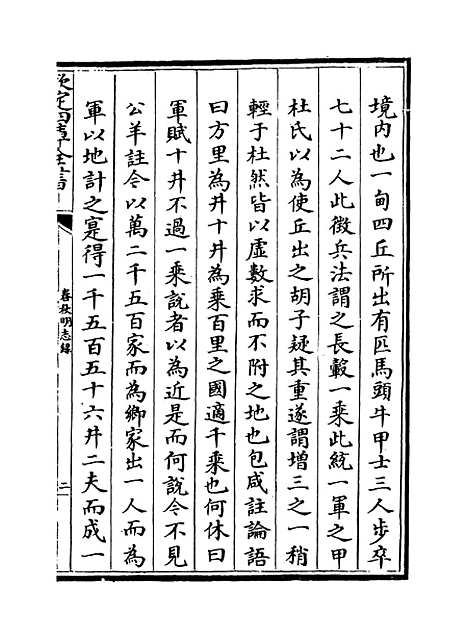 境内也一甸四丘所出有匹馬頭牛甲士三人步卒
七十二人此徴兵法謂之長轂一乗此統一軍之甲
杜氏以為使丘出之胡子疑其重遂謂增三之一稍
輕于杜然皆以虚數求而不附之地也包咸註論語
曰方里為井十井為乗百里之國適千乗也何休曰
軍賦十井不過一乗說者以為近是而何說今不見
公羊註今以萬二千五百家而為鄉家出一人而為
軍以地計之寔得一千五百五十六井二夫而成一
欽定四庫全書
春秋明志錄
二